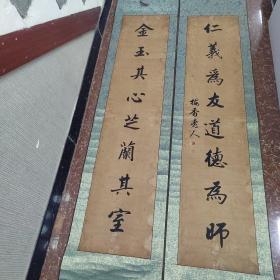 仁義為友道德為師
金玉其心芝蘭其室